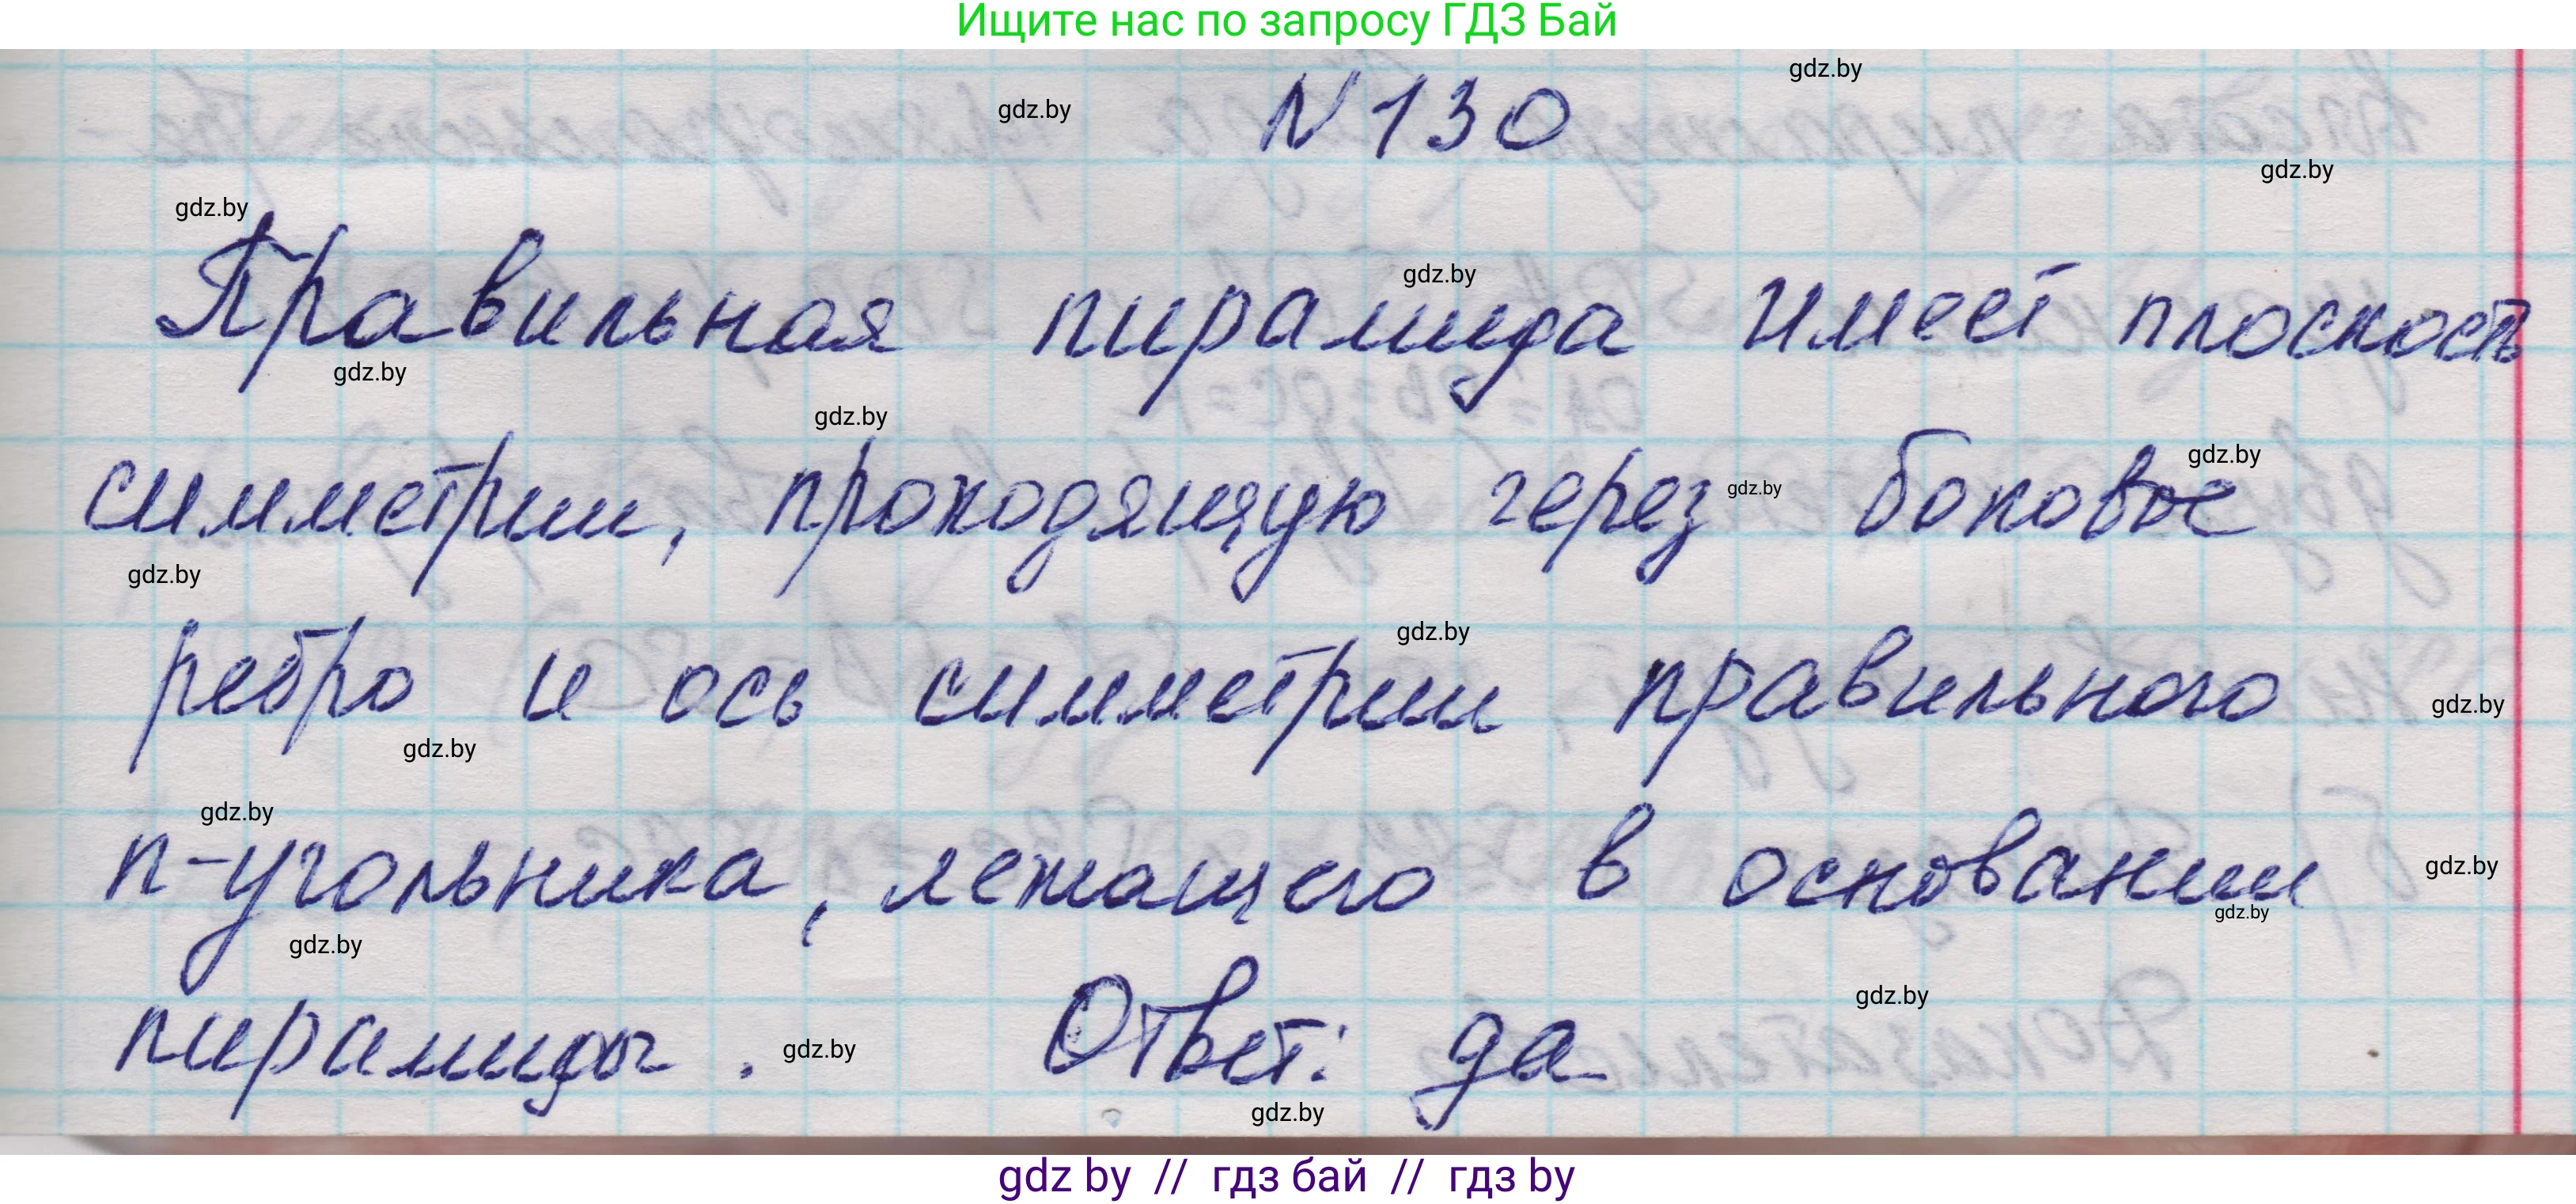 Ищите нас по запросу ГДЗ Бай
gdz.by
gdz.by
N 130
gdz.by
gdz.by
gdz.by
Правильная пирамида имеет плоскость
gdz.by
gdz.by
gdz.by
симметрии, проходящую через боковое
gdz.by
gdz.by
gdz.by
ребро и ось симметрии правильного
gdz.by
gdz.by
gdz.by
n-угольника, лежащего в основании
gdz.by
gdz.by
gdz.by
gdz.by
пирамиды. Ответ: да
gdz.by
gdz.by
gdz by // гдз бай // гдз by